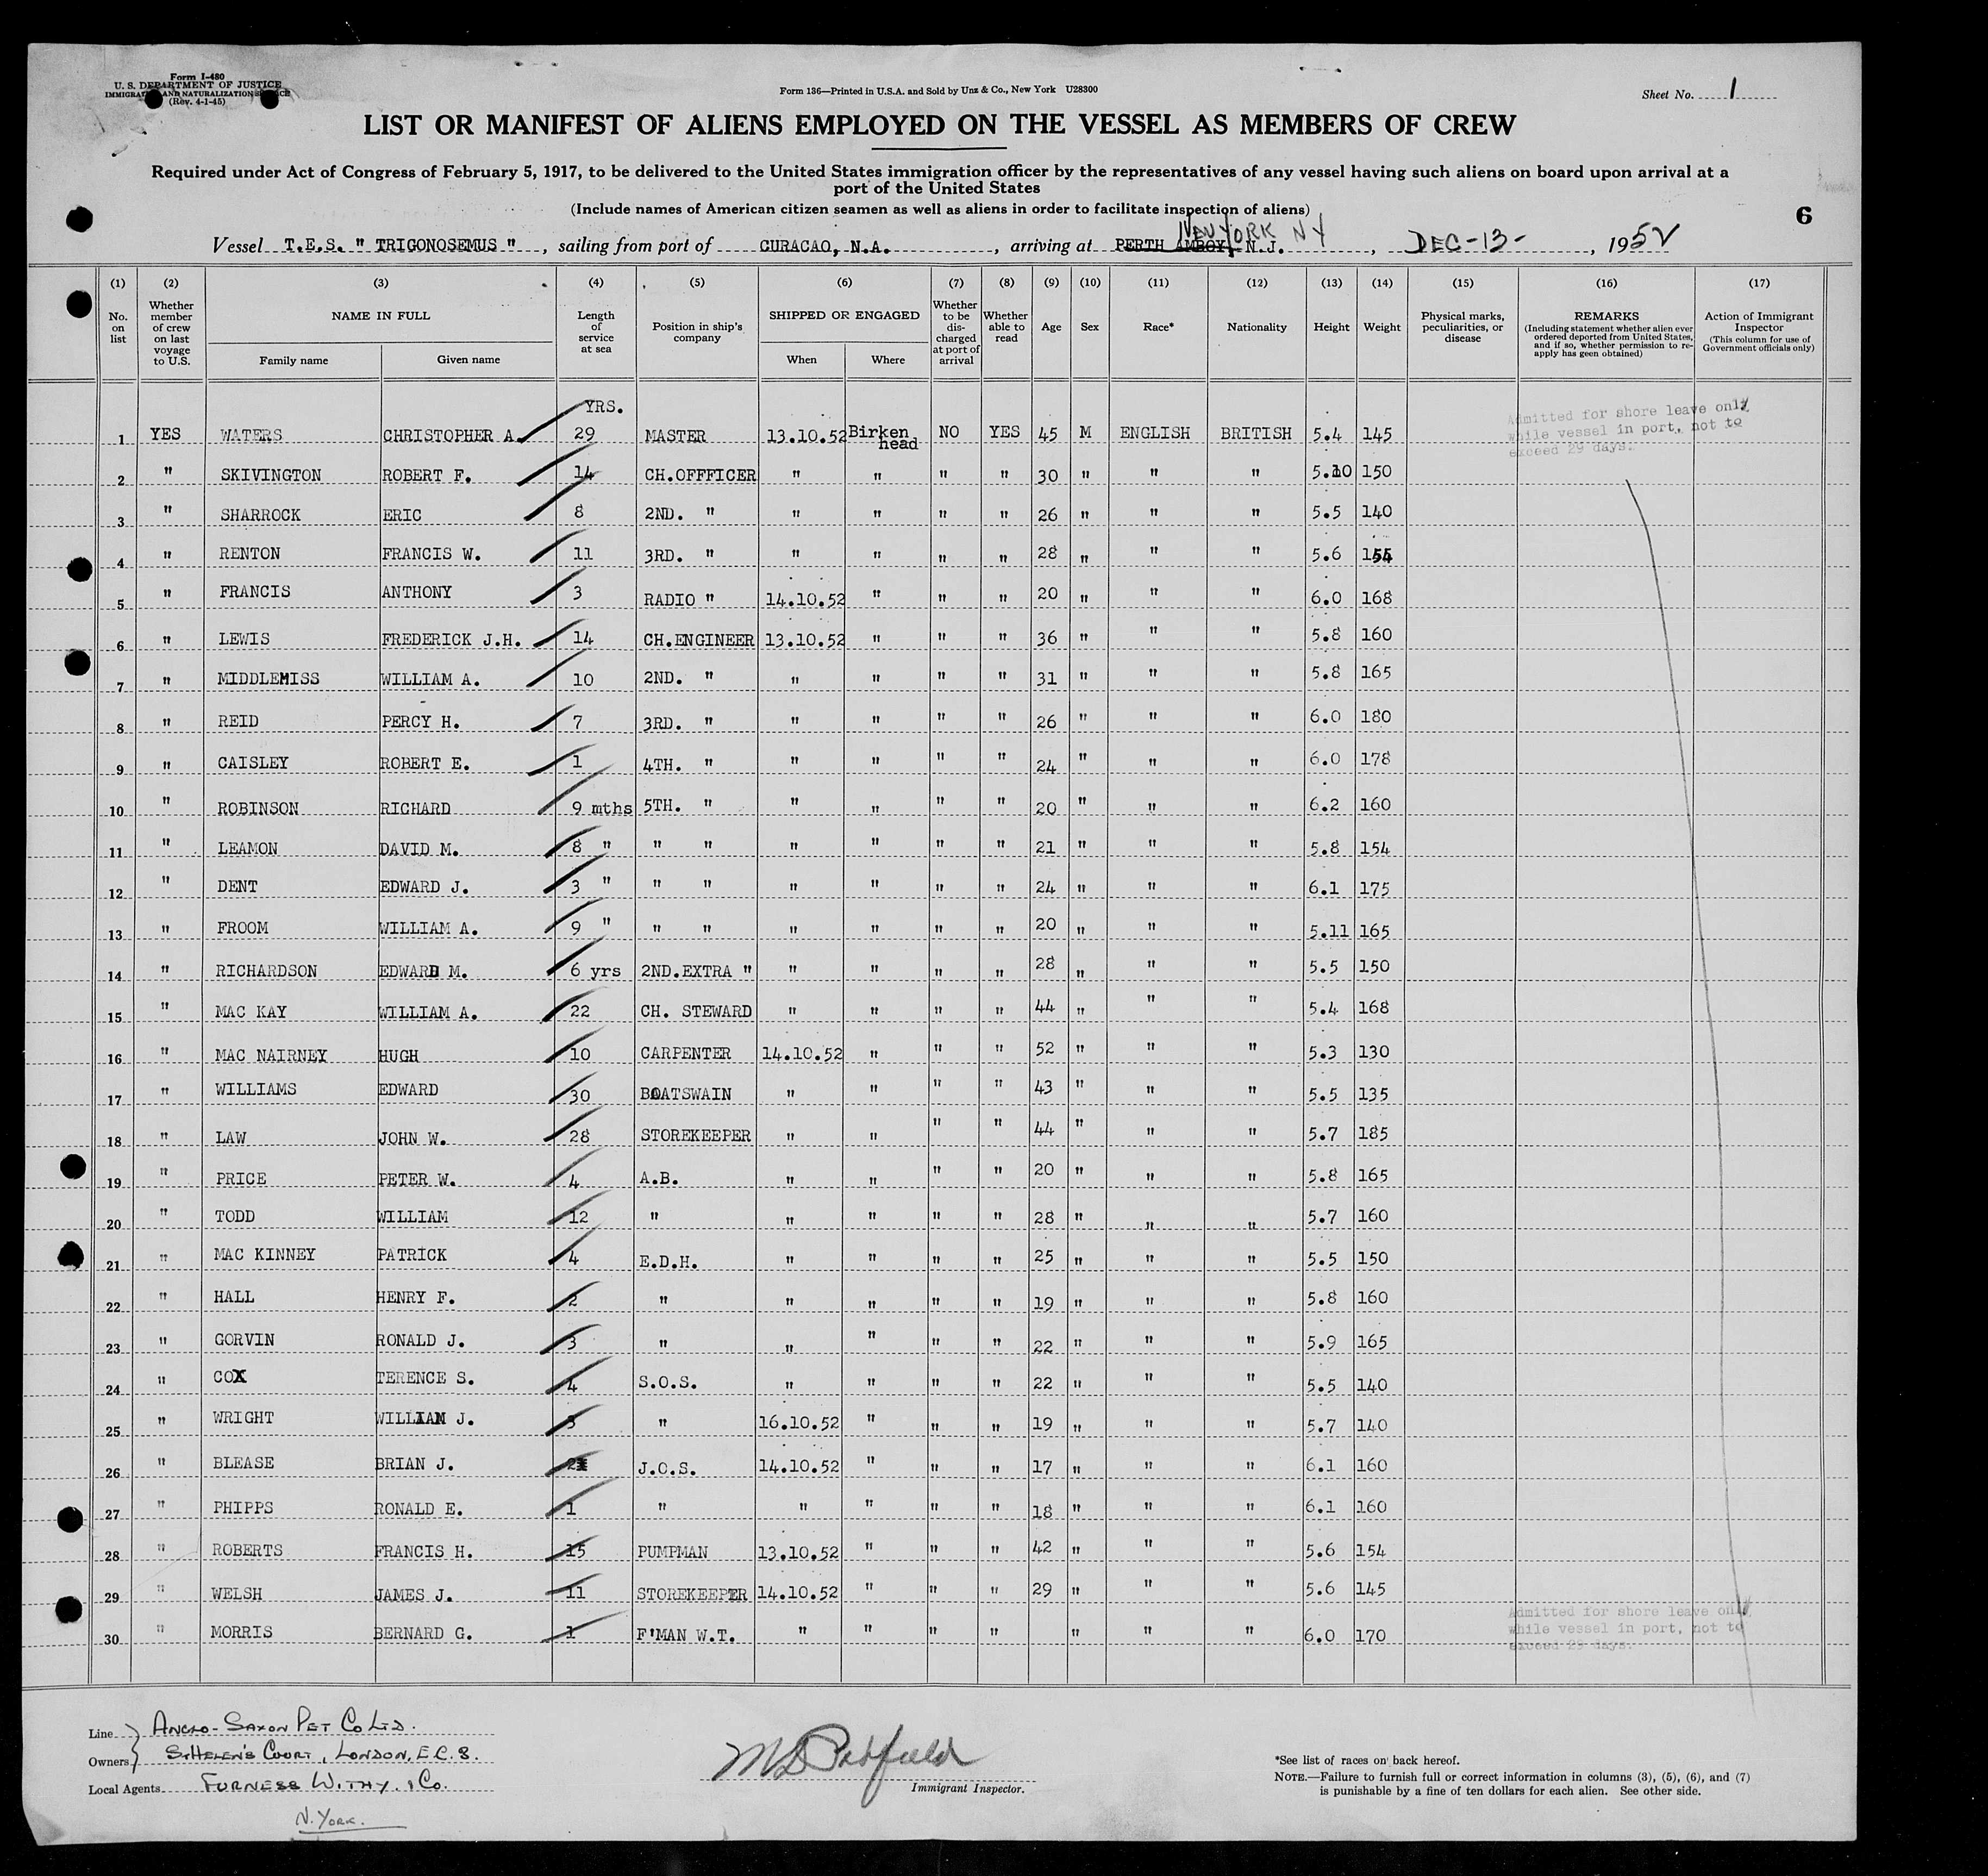 Form I-480
U. S. DEPARTMENT OF JUSTICE
IMMIGRATION AND NATURALIZATION SERVICE
(Rev. 4-1-45)
Form 136—Printed in U.S.A. and Sold by Unz & Co., New York U28300
Sheet No. 1
LIST OR MANIFEST OF ALIENS EMPLOYED ON THE VESSEL AS MEMBERS OF CREW
Required under Act of Congress of February 5, 1917, to be delivered to the United States immigration officer by the representatives of any vessel having such aliens on board upon arrival at a
port of the United States
(Include names of American citizen seamen as well as aliens in order to facilitate inspection of aliens)
6
NEW YORK NY
Vessel T.E.S. " TRIGONOSEMUS ", sailing from port of CURACAO, N.A., arriving at PERTH AMBOY, N.J., DEC-13-, 1952
(1) (2) (3) (4) (5) (6) (7) (8) (9) (10) (11) (12) (13) (14) (15) (16) (17)
No. on list Whether member of crew on last voyage to U.S. NAME IN FULL Family name Given name Length of service at sea Position in ship's company SHIPPED OR ENGAGED When Where Whether to be discharged at port of arrival Whether able to read Age Sex Race* Nationality Height Weight Physical marks, peculiarities, or disease REMARKS (Including statement whether alien ever ordered deported from United States, and if so, whether permission to re-apply has geen obtained) Action of Immigrant Inspector (This column for use of Government officials only)
YRS.
1 YES WATERS CHRISTOPHER A. 29 MASTER 13.10.52 Birken head NO YES 45 M ENGLISH BRITISH 5.4 145 Admitted for shore leave only while vessel in port, not to exceed 29 days.
2 " SKIVINGTON ROBERT F. 14 CH.OFFFICER " " " " 30 " " " 5.10 150
3 " SHARROCK ERIC 8 2ND. " " " " " 26 " " " 5.5 140
4 " RENTON FRANCIS W. 11 3RD. " " " " " 28 " " " 5.6 154
5 " FRANCIS ANTHONY 3 RADIO " 14.10.52 " " " 20 " " " 6.0 168
6 " LEWIS FREDERICK J.H. 14 CH.ENGINEER 13.10.52 " " " 36 " " " 5.8 160
7 " MIDDLEMISS WILLIAM A. 10 2ND. " " " " " 31 " " " 5.8 165
8 " REID PERCY H. 7 3RD. " " " " " 26 " " " 6.0 180
9 " CAISLEY ROBERT E. 1 4TH. " " " " " 24 " " " 6.0 178
10 " ROBINSON RICHARD 9 mths 5TH. " " " " " 20 " " " 6.2 160
11 " LEAMON DAVID M. 8 " " " " " " " 21 " " " 5.8 154
12 " DENT EDWARD J. 3 " " " " " " " 24 " " " 6.1 175
13 " FROOM WILLIAM A. 9 " " " " " " " 20 " " " 5.11 165
14 " RICHARDSON EDWARD M. 6 yrs 2ND.EXTRA " " " " " 28 " " " 5.5 150
15 " MAC KAY WILLIAM A. 22 CH. STEWARD " " " " 44 " " " 5.4 168
16 " MAC NAIRNEY HUGH 10 CARPENTER 14.10.52 " " " 52 " " " 5.3 130
17 " WILLIAMS EDWARD 30 BOATSWAIN " " " " 43 " " " 5.5 135
18 " LAW JOHN W. 28 STOREKEEPER " " " " 44 " " " 5.7 185
19 " PRICE PETER W. 4 A.B. " " " " 20 " " " 5.8 165
20 " TODD WILLIAM 12 " " " " " 28 " " " 5.7 160
21 " MAC KINNEY PATRICK 4 E.D.H. " " " " 25 " " " 5.5 150
22 " HALL HENRY F. 2 " " " " " 19 " " " 5.8 160
23 " GORVIN RONALD J. 3 " " " " " 22 " " " 5.9 165
24 " COX TERENCE S. 4 S.O.S. " " " " 22 " " " 5.5 140
25 " WRIGHT WILLIAM J. 3 " 16.10.52 " " " 19 " " " 5.7 140
26 " BLEASE BRIAN J. 2 J.O.S. 14.10.52 " " " 17 " " " 6.1 160
27 " PHIPPS RONALD E. 1 " " " " " 18 " " " 6.1 160
28 " ROBERTS FRANCIS H. 15 PUMPMAN 13.10.52 " " " 42 " " " 5.6 154
29 " WELSH JAMES J. 11 STOREKEEPER 14.10.52 " " " 29 " " " 5.6 145
30 " MORRIS BERNARD G. 1 F'MAN W.T. " " " " " " " 6.0 170 Admitted for shore leave only while vessel in port, not to exceed 29 days.
Line ANGLO-SAXON PET CO LTD.
Owners ST HELEN'S COURT, LONDON, E.C. 3.
Local Agents FURNESS WITHY & CO.
N. YORK.
Immigrant Inspector.
*See list of races on back hereof.
NOTE.—Failure to furnish full or correct information in columns (3), (5), (6), and (7)
is punishable by a fine of ten dollars for each alien. See other side.